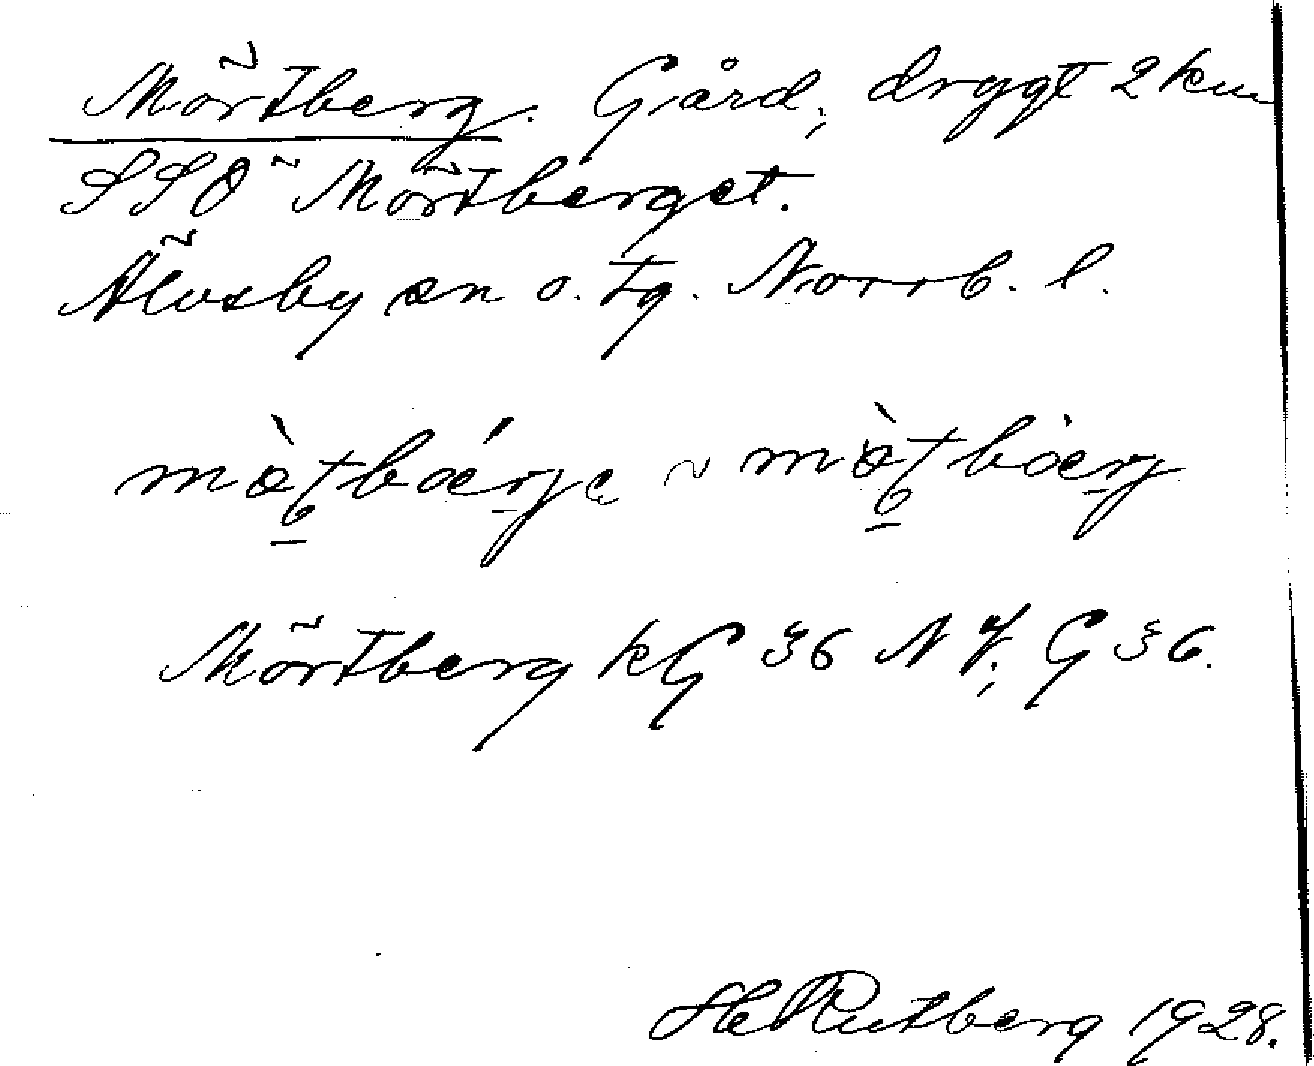 Mörtberg. Gård, drygt 2 km
SSO Mörtberget.
Älvsby sn o. tg. Norrb. l.
Mörtberg kG 36 NV; G 36.
H Rutberg 1928.